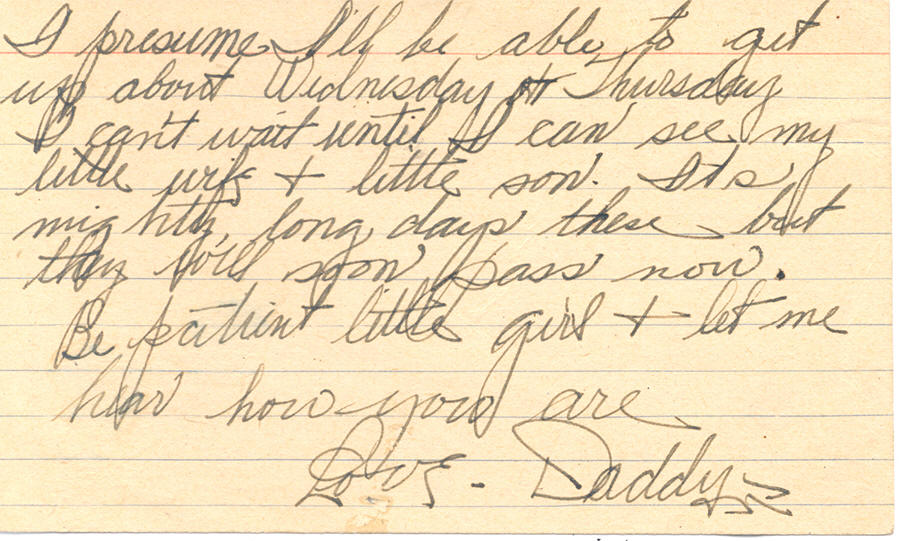 I presume I'll be able to get
up about Wednesday or Thursday
I can't wait until I can see my
little wife + little son. Its
mighty long days these but
they will soon pass now.
Be patient little girl + let me
hear how you are
Love - Daddy